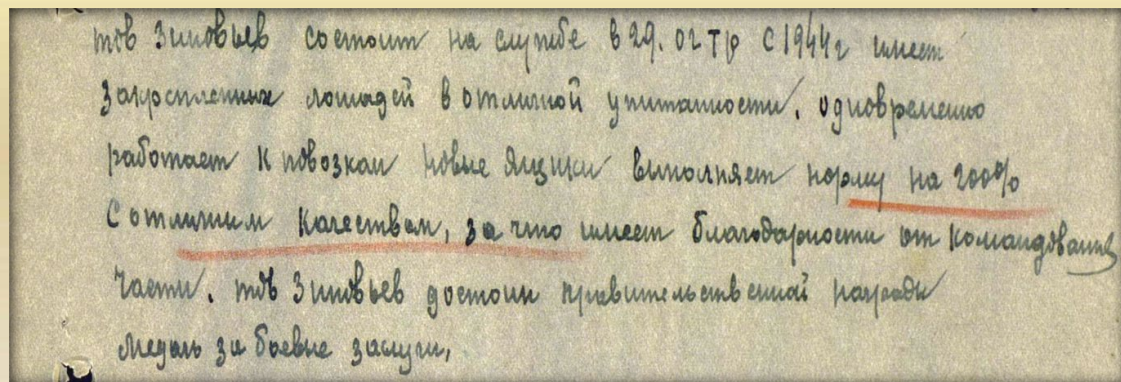 тов Зиновьев состоит на службе в 29. ОГТР с 1944г имеет
закрепленных лошадей в отличной упитанности. одновременно
работает к повозкам новые ящики выполняет норму на 200%
с отличим качеством, за что имеет благодарности от командования
части. тов Зиновьев достоин правительственной награды
медаль за боевые заслуги.